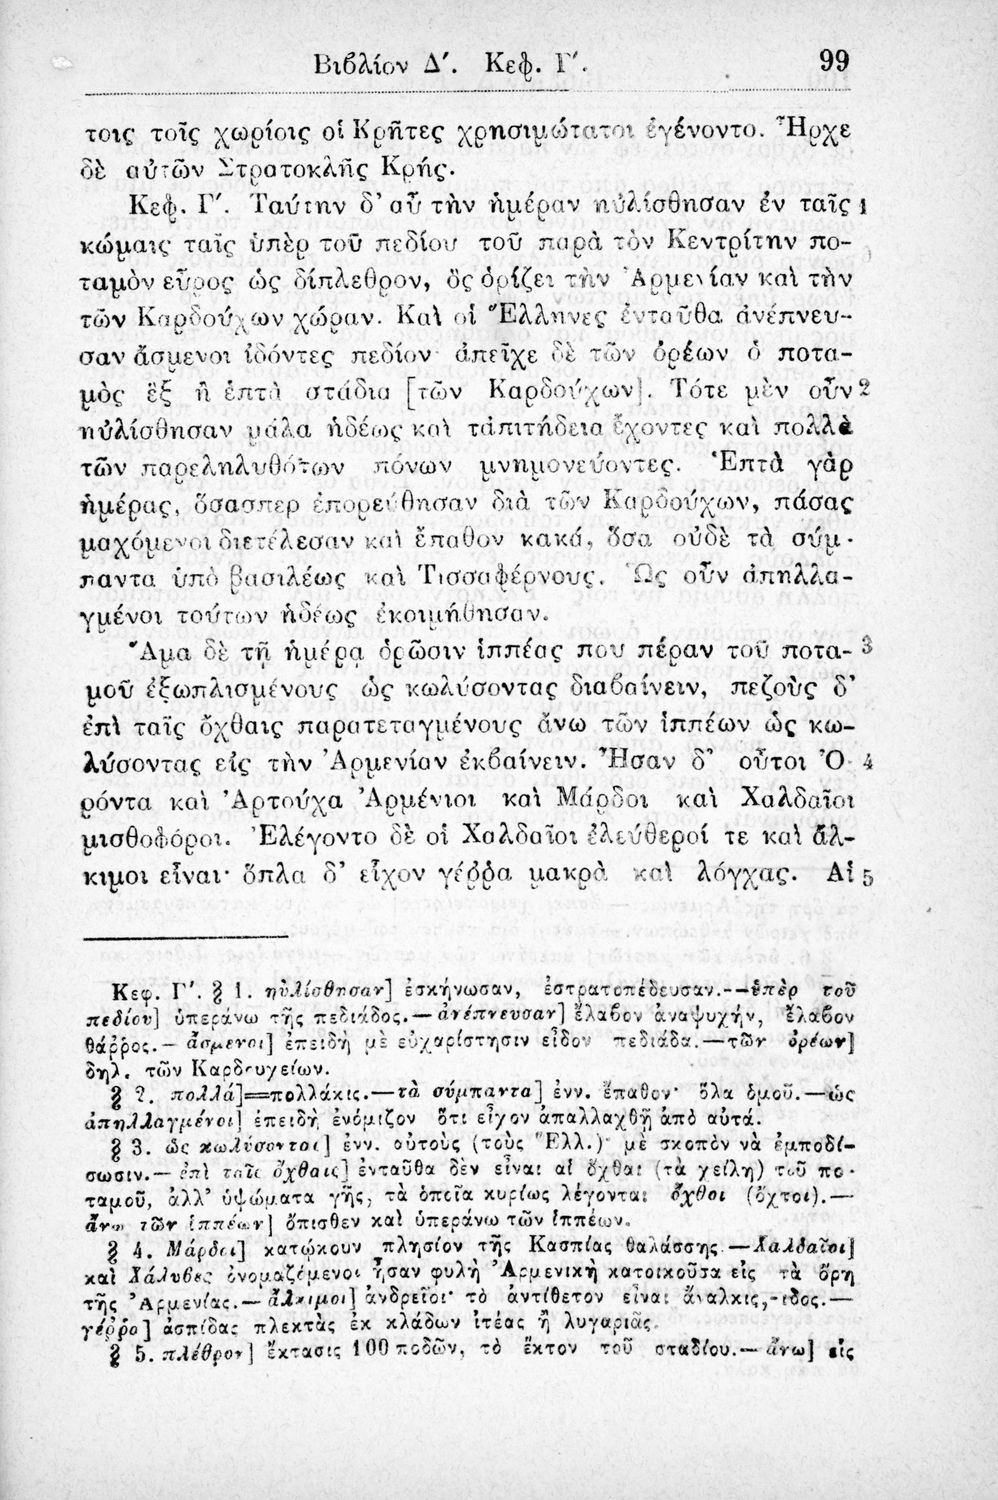 Βιβλίον Δ΄. Κεφ. Γ΄. 99
τοις τοῖς χωρίοις οἱ Κρῆτες χρησιμώτατοι ἐγένοντο. Ἦρχε
δὲ αὐτῶν Στρατοκλῆς Κρής.
Κεφ. Γ΄. Ταύτην δ' αὖ τὴν ἡμέραν ηὐλίσθησαν ἐν ταῖς 1
κώμαις ταῖς ὑπὲρ τοῦ πεδίου τοῦ παρὰ τὸν Κεντρίτην πο-
ταμὸν εὖρος ὡς δίπλεθρον, ὃς ὁρίζει τὴν Ἀρμενίαν καὶ τὴν
τῶν Καρδούχων χώραν. Καὶ οἱ Ἕλληνες ἐνταῦθα ἀνέπνευ-
σαν ἄσμενοι ἰδόντες πεδίον· ἀπεῖχε δὲ τῶν ὀρέων ὁ ποτα-
μὸς ἓξ ἢ ἑπτὰ στάδια [τῶν Καρδούχων]. Τότε μὲν οὖν 2
ηὐλίσθησαν μάλα ἡδέως καὶ τἀπιτήδεια ἔχοντες καὶ πολλὰ
τῶν παρεληλυθότων πόνων μνημονεύοντες. Ἑπτὰ γὰρ
ἡμέρας, ὅσασπερ ἐπορεύθησαν διὰ τῶν Καρδούχων, πάσας
μαχόμενοι διετέλεσαν καὶ ἔπαθον κακά, ὅσα οὐδὲ τὰ σύμ-
παντα ὑπὸ βασιλέως καὶ Τισσαφέρνους. Ὡς οὖν ἀπηλλα-
γμένοι τούτων ἡδέως ἐκοιμήθησαν.
Ἅμα δὲ τῇ ἡμέρᾳ ὁρῶσιν ἱππέας που πέραν τοῦ ποτα- 3
μοῦ ἐξωπλισμένους ὡς κωλύσοντας διαβαίνειν, πεζοὺς δ'
ἐπὶ ταῖς ὄχθαις παρατεταγμένους ἄνω τῶν ἱππέων ὡς κω-
λύσοντας εἰς τὴν Ἀρμενίαν ἐκβαίνειν. Ἦσαν δ' οὗτοι Ὀ- 4
ρόντα καὶ Ἀρτούχα Ἀρμένιοι καὶ Μάρδοι καὶ Χαλδαῖοι
μισθοφόροι. Ἐλέγοντο δὲ οἱ Χαλδαῖοι ἐλεύθεροί τε καὶ ἄλ-
κιμοι εἶναι· ὅπλα δ' εἶχον γέῤῥα μακρὰ καὶ λόγχας. Αἱ 5
Κεφ. Γ΄. § 1. ηὐλίσθησαν] ἐσκήνωσαν, ἐστρατοπέδευσαν.—ὑπὲρ τοῦ
πεδίου] ὑπεράνω τῆς πεδιάδος.—ἀνέπνευσαν] ἔλαβον ἀναψυχήν, ἔλαβον
θάῤῥος.—ἄσμενοι] ἐπειδὴ μὲ εὐχαρίστησιν εἶδον πεδιάδα.—τῶν ὀρέων]
δηλ. τῶν Καρδουχείων.
§ 2. πολλά]=πολλάκις.—τὰ σύμπαντα] ἐνν. ἔπαθον· ὅλα ὁμοῦ.—ὡς
ἀπηλλαγμένοι] ἐπειδὴ ἐνόμιζον ὅτι εἶχον ἀπαλλαχθῆ ἀπὸ αὐτά.
§ 3. ὡς κωλύσοντας] ἐνν. αὐτοὺς (τοὺς Ἕλλ.)· μὲ σκοπὸν νὰ ἐμποδί-
σωσιν.—ἐπὶ ταῖς ὄχθαις] ἐνταῦθα δὲν εἶναι αἱ ὄχθαι (τὰ χείλη) τοῦ πο-
ταμοῦ, ἀλλ' ὑψώματα γῆς, τὰ ὁποῖα κυρίως λέγονται ὄχθοι (ὄχτοι).—
ἄνω τῶν ἱππέων] ὄπισθεν καὶ ὑπεράνω τῶν ἱππέων.
§ 4. Μάρδοι] κατῴκουν πλησίον τῆς Κασπίας θαλάσσης.—Χαλδαῖοι]
καὶ Χάλυβες ὀνομαζόμενοι ἦσαν φυλὴ Ἀρμενικὴ κατοικοῦσα εἰς τὰ ὄρη
τῆς Ἀρμενίας.—ἄλκιμοι] ἀνδρεῖοι· τὸ ἀντίθετον εἶναι ἄναλκις,-ιδος.—
γέῤῥα] ἀσπίδας πλεκτὰς ἐκ κλάδων ἰτέας ἢ λυγαριᾶς.
§ 5. πλέθρον] ἔκτασις 100 ποδῶν, τὸ ἕκτον τοῦ σταδίου.—ἄνω] εἰς